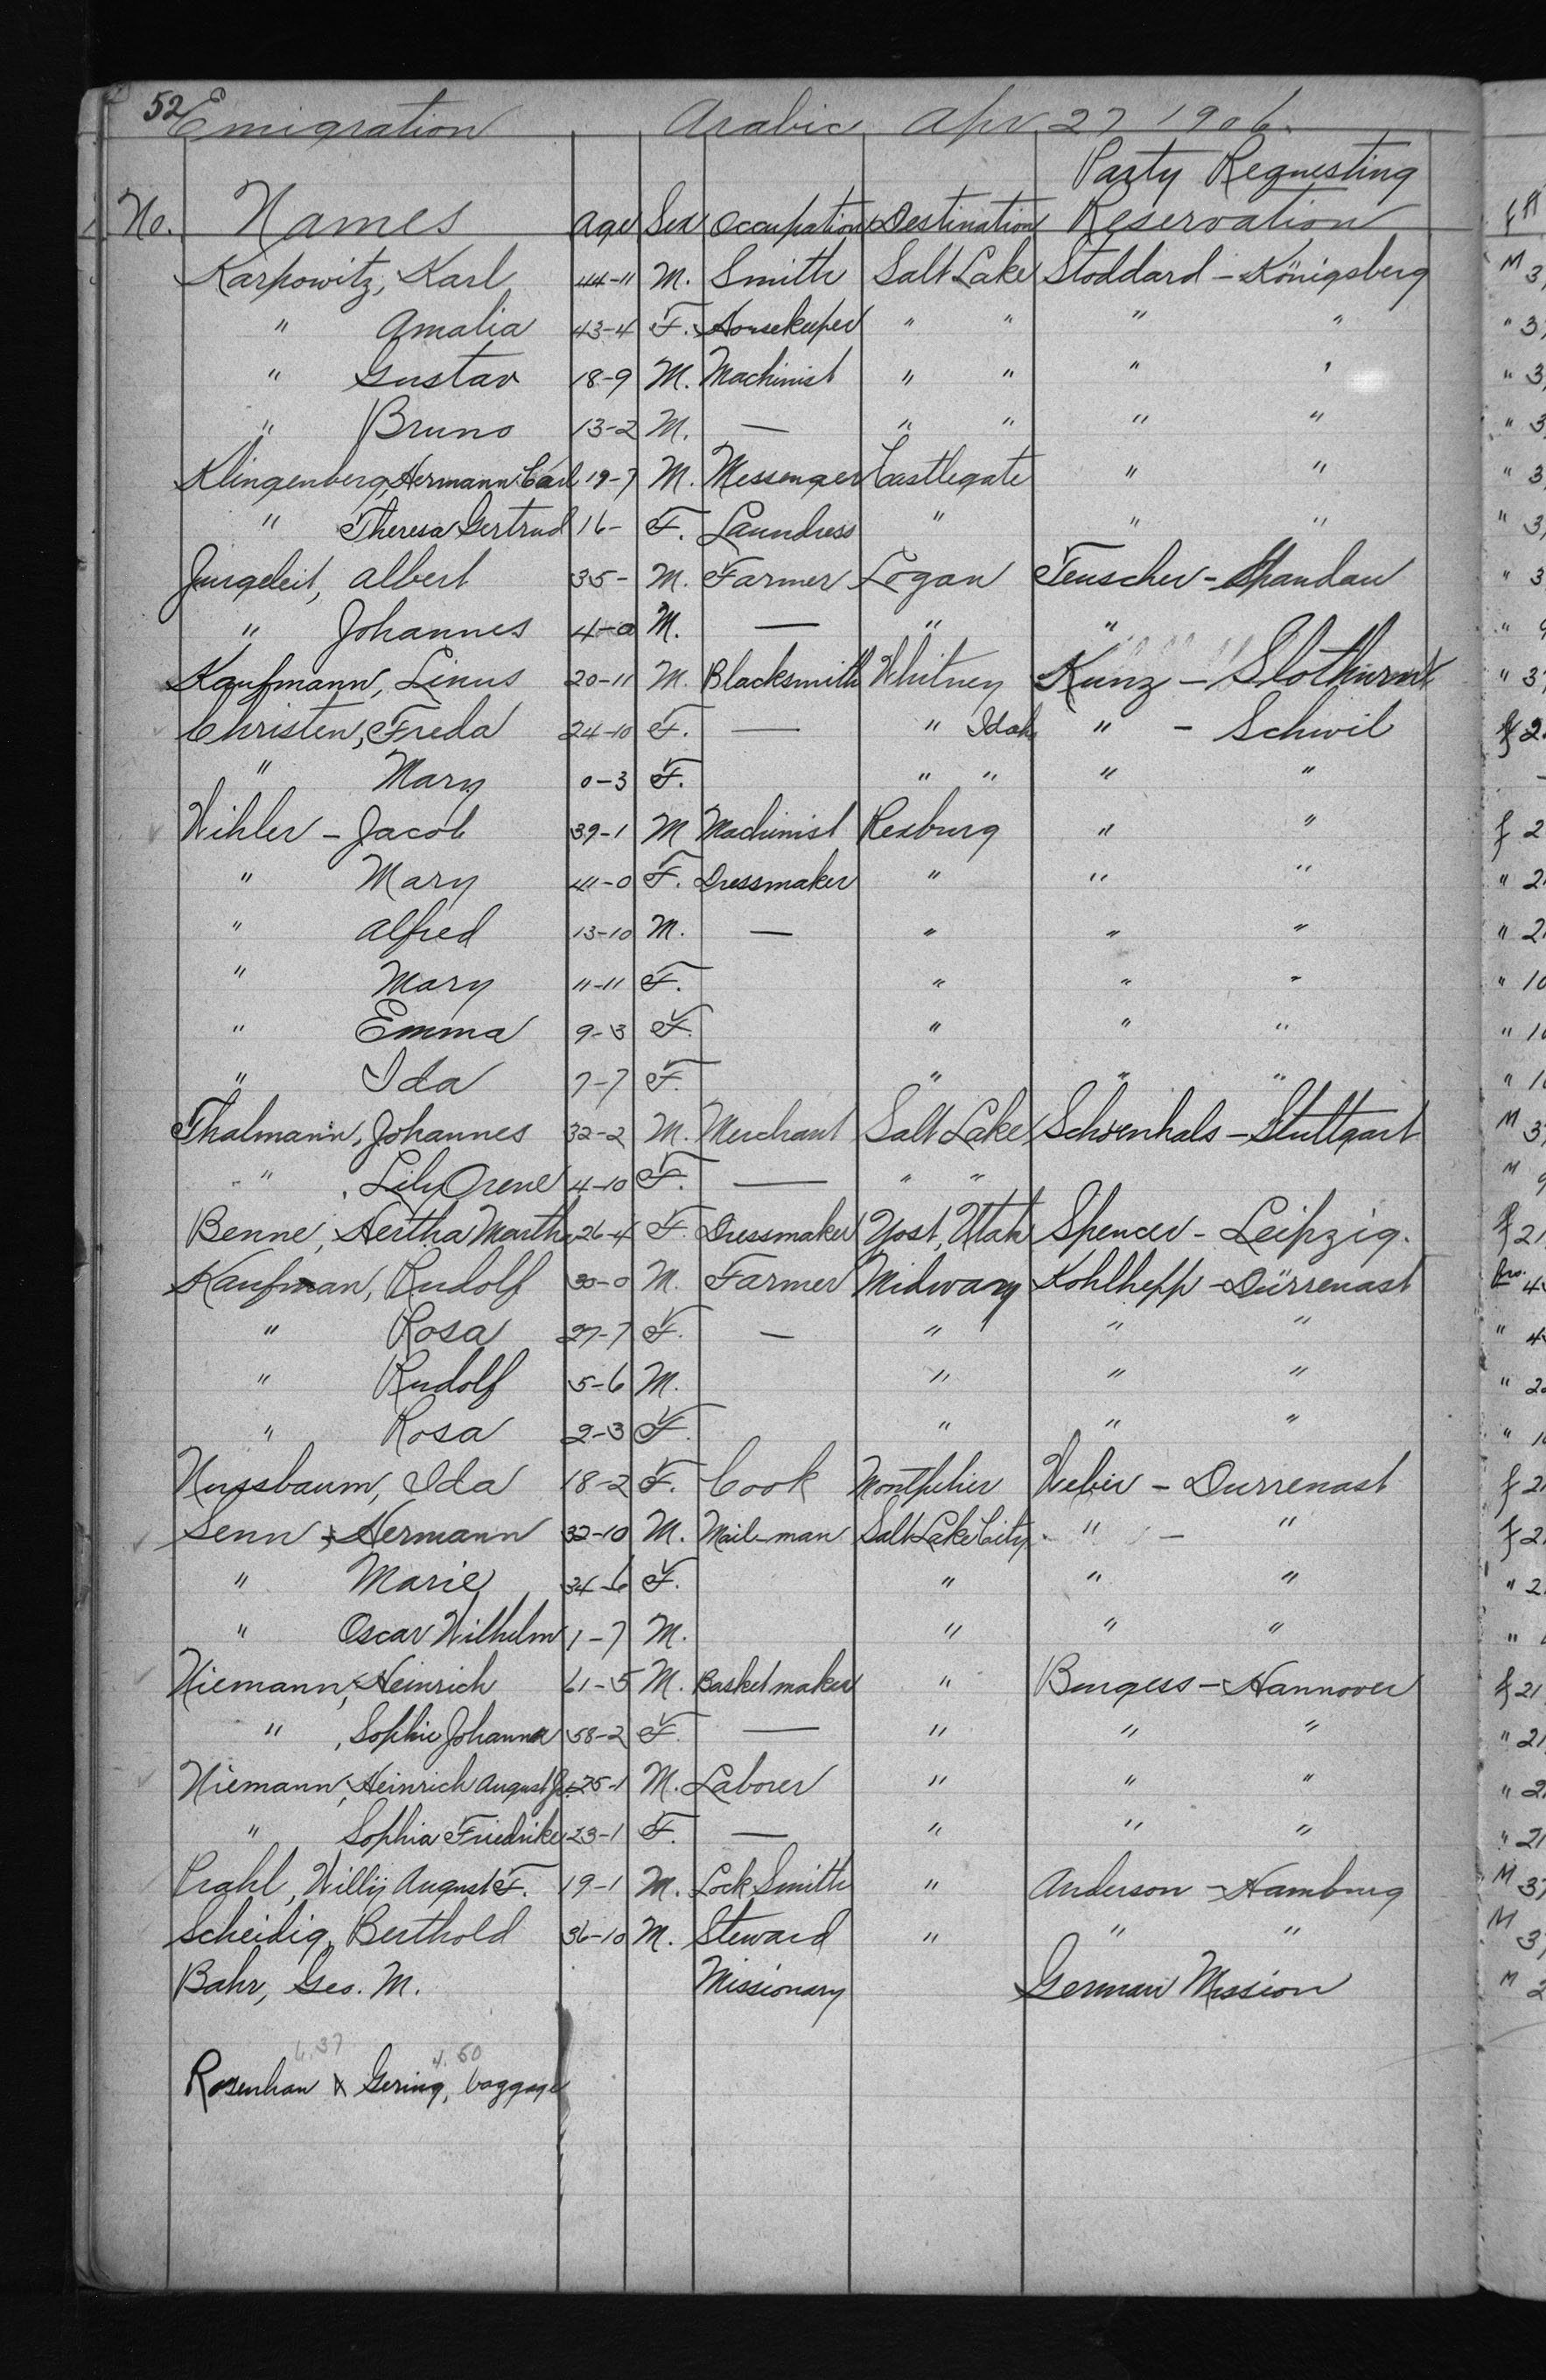 52 Emigration Arabic Apr 27 1906.
Party Requesting
No. Names Age Sex Occupation Destination Reservation
Karpowitz, Karl 44-11 M. Smith Salt Lake Stoddard - Königsberg
" Amalia 43-4 F. Housekeeper " " " "
" Gustav 18-9 M. Machinist " " " "
" Bruno 13-2 M. — " " " "
Klingenberg, Hermann Carl 19-7 M. Messenger Castlegate " "
" Theresa Gertrud 16- F. Laundress " " "
Jurgeleit, Albert 35- M. Farmer Logan Teuscher - Spandau
" Johannes 4-0 M. — " "
Kaufmann, Linus 20-11 M. Blacksmith Whitney Kunz -
Christen, Freda 24-10 F. — " Idah " - Schwil
" Mary 0-3 F. " " " "
Wihler - Jacob 39-1 M Machinist Rexburg " "
" Mary 41-0 F. Dressmaker " " "
" Alfred 13-10 M. — " " "
" Mary 11-11 F. " " "
" Emma 9-3 F. " " "
" Ida 7-7 F. " " "
Thalmann, Johannes 32-2 M. Merchant Salt Lake Schoenhals - Stuttgart
" , Lily Orene 4-10 F. — " "
Benne, Hertha Martha 26-4 F. Dressmaker Yost, Utah Spencer - Leipzig.
Kaufman, Rudolf 30-0 M. Farmer Midway Kohlhepp - Dürrenast
" Rosa 27-7 F. — " " "
" Rudolf 5-6 M. " " "
" Rosa 2-3 F. " " "
Nussbaum, Ida 18-2 F. Cook Montpelier Weber - Durrenast
Senn, Hermann 32-10 M. Mail-man Salt Lake City. " - "
" Marie 34-6 F. " " "
" Oscar Wilhelm 1-7 M. " " "
Niemann, Heinrich 61-5 M. Basketmaker " Burgess - Hannover
" , Sophie Johanna 58-2 F. — " " "
Niemann, Heinrich August Jr. 25-1 M. Laborer " " "
" Sophia Friedrike 23-1 F. — " " "
Prahl, Willy August F. 19-1 M. Lock Smith " Anderson - Hamburg
Scheidig, Berthold 36-10 M. Steward " " "
Bahr, Geo. M. Missionary German Mission
6.37 4.50
Rosenhan & Gering, baggage